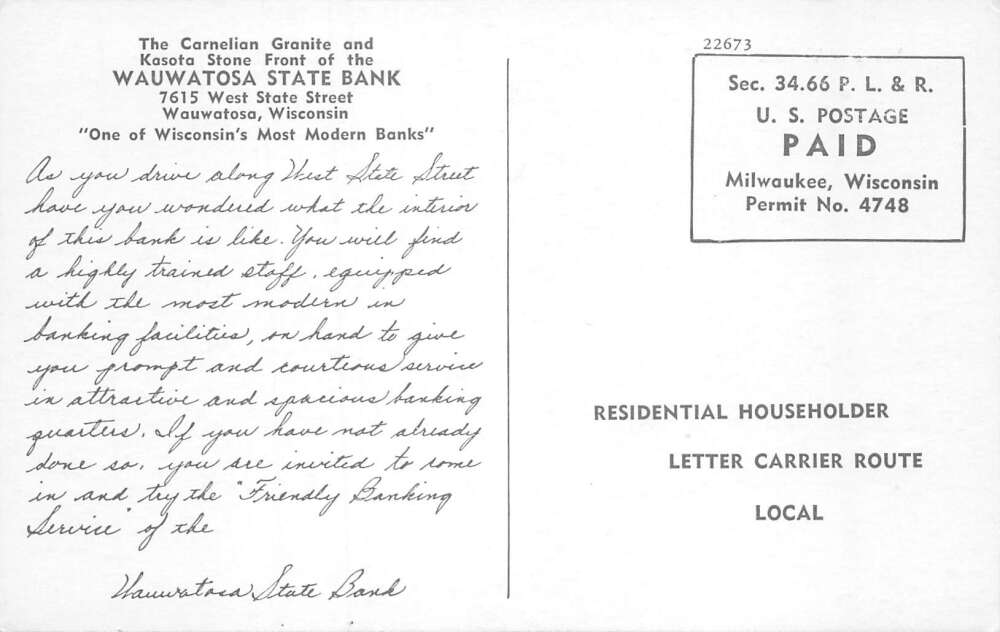 The Carnelian Granite and
Kasota Stone Front of the
WAUWATOSA STATE BANK
7615 West State Street
Wauwatosa, Wisconsin
"One of Wisconsin's Most Modern Banks"
As you drive along West State Street
have you wondered what the interior
of this bank is like. You will find
a highly trained staff, equipped
with the most modern in
banking facilities, on hand to give
you prompt and courteous service
in attractive and spacious banking
quarters. If you have not already
done so, you are invited to come
in and try the "Friendly Banking
Service" of the
Wauwatosa State Bank
22673
Sec. 34.66 P. L. & R.
U. S. POSTAGE
PAID
Milwaukee, Wisconsin
Permit No. 4748
RESIDENTIAL HOUSEHOLDER
LETTER CARRIER ROUTE
LOCAL